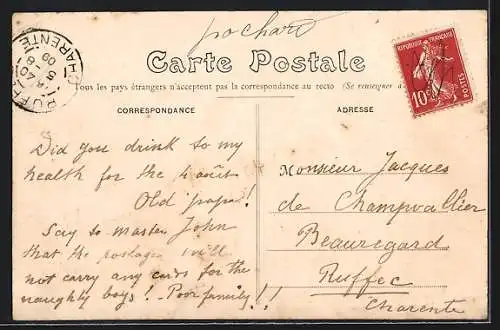 pochard
RUFFEC
CHARENTE
Carte Postale
Tous les pays étrangers n'acceptent pas la correspondance au recto (Se renseigner à
CORRESPONDANCE
Did you drink to my
health for the 4 août
Old papa!
Say to master John
that the postages will
not carry any cards for the
naughty boys! Poor family!!!
ADRESSE
REPUBLIQUE FRANÇAISE
10c
POSTES
Monsieur Jacques
de Champvallier
Beauregard
Ruffec
Charente